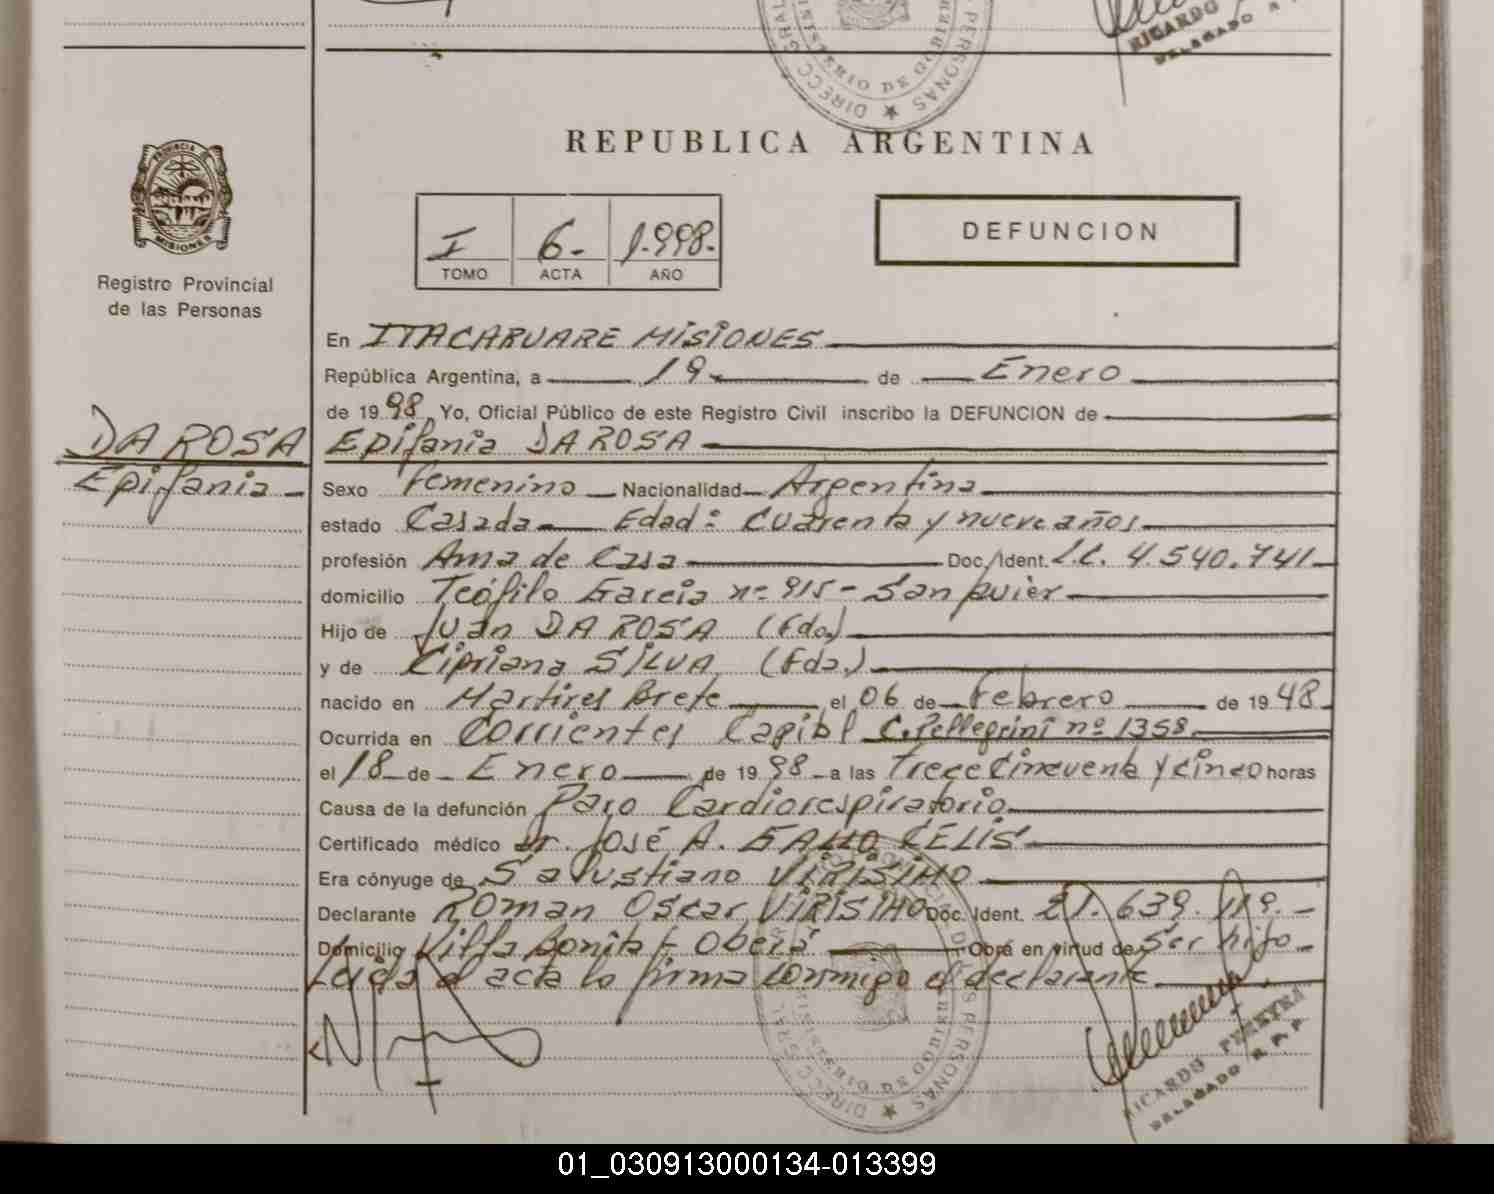 RICARDO
DELEGADO R.
DIRECC. GRAL. PERSONAS
MINISTERIO DE GOBIERNO
REPUBLICA ARGENTINA
PROVINCIA DE
MISIONES
I 6.- 1.998.-
TOMO ACTA AÑO
DEFUNCION
Registro Provincial
de las Personas
En ITACARUARE MISIONES
República Argentina, a 19 de Enero
de 19 98, Yo, Oficial Público de este Registro Civil inscribo la DEFUNCION de
DA ROSA Epifania DA ROSA
Epifania Sexo Femenino Nacionalidad Argentina
estado Casada Edad: Cuarenta y nueve años
profesión Ama de Casa Doc/Ident. L.C. 4.540.741
domicilio Teófilo Garcia nº 915 - San
Hijo de Juan DA ROSA (Fdo.)
y de Cipriana SILVA (Fda.)
nacido en Martires Brete el 06 de Febrero de 19 48
Ocurrida en Corrientes Capital C. Pellegrini nº 1358
el 18 de Enero de 19 98 a las Trece Cincuenta y cinco horas
Causa de la defunción Paro Cardiorespiratorio
Certificado médico Dr. José A. GALLO CELIS
Era cónyuge de Salustiano VIRISIMO
Declarante ROMAN OSCAR VIRISIMO Doc. Ident. 21.639.119.-
Domicilio Villa Bonita - Oberá Obra en virtud de Ser hijo
Leida el acta la firma conmigo el declarante
DIRECC. GRAL. DE LAS PERSONAS
MINISTERIO DE GOBIERNO
RICARDO PEREYRA
DELEGADO R.P.P.
01_030913000134-013399